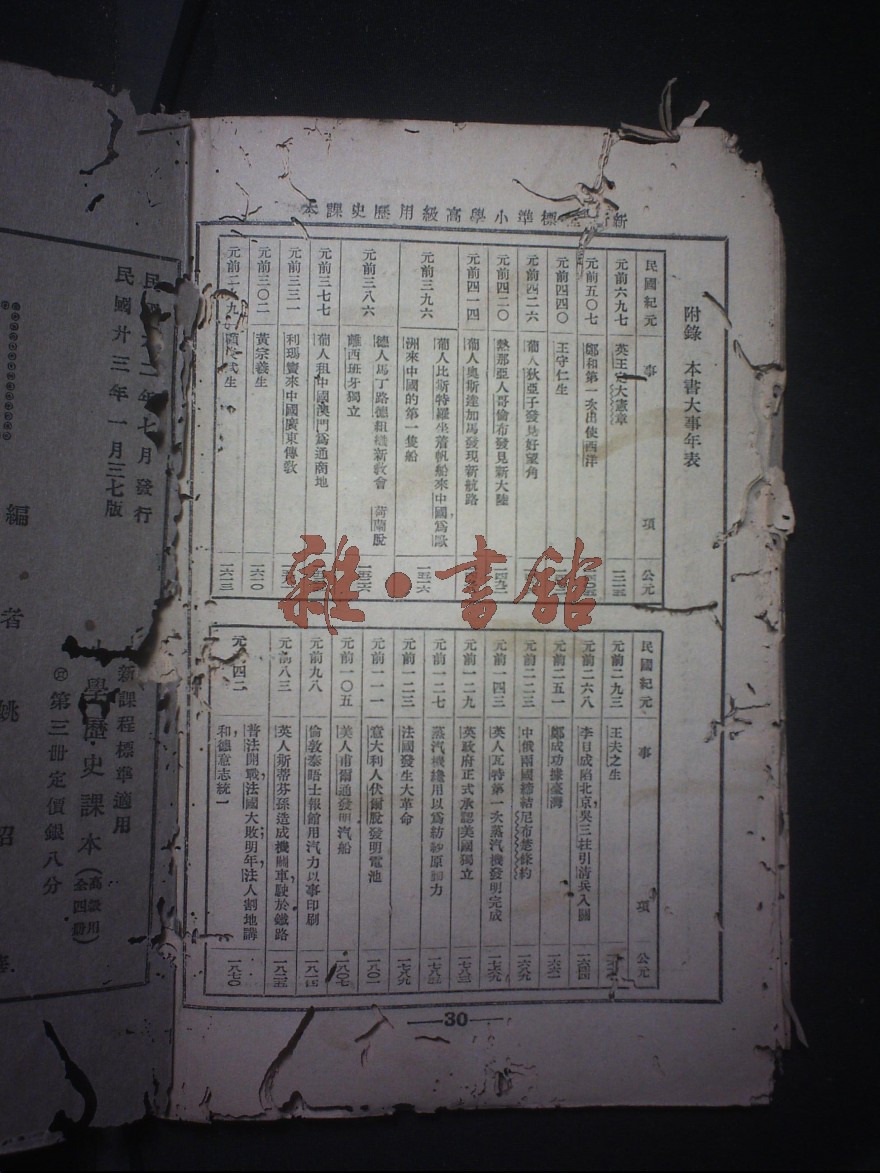 新 標準小學高級用歷史課本
附錄 本書大事年表
民國紀元 事項 公元
元前六九七 英王 大憲章 一二一五
元前五〇七 鄭和第一次出使西洋
元前四四〇 王守仁生
元前四二六 葡人狄亞子發見好望角
元前四二〇 熱那亞人哥倫布發見新大陸
元前四一四 葡人奧斯達加馬發現新航路
元前三九六 葡人比斯特羅坐着帆船來中國,爲歐
洲來中國的第一隻船 一五一六
元前三八六 德人馬丁路德組織新教會 荷蘭脫
離西班牙獨立
元前三七七 葡人租中國澳門爲通商地
元前三三一 利瑪竇來中國廣東傳教
元前三〇二 黃宗羲生 一六一〇
元前二 九 武生 一六一三
民國紀元 事項 公元
元前二九三 王夫之生
元前二六八 李自成陷北京,吳三桂引清兵入關 一六四四
元前二五一 鄭成功據臺灣 一六六一
元前二二三 中俄兩國締結尼布楚條約 一六八九
元前一四三 英人瓦特第一次蒸汽機發明完成 一七六九
元前一二九 英政府正式承認美國獨立 一七八三
元前一二七 蒸汽機纔用以爲紡紗原動力 一七八五
元前一二三 法國發生大革命 一七八九
元前一一一 意大利人伏爾脫發明電池 一八〇一
元前一〇五 美人甫爾通發明汽船 一八〇七
元前九八 倫敦泰晤士報館用汽力以事印刷 一八一四
元前八三 英人斯蒂芬孫造成機關車,駛於鐵路 一八二五
元 四二 普法開戰,法國大敗;明年,法人割地講
和,德意志統一 一八七〇
30
新課程標準適用
學歷史課本(高級用 全四册)
第三册定價銀八分
民 二年七月發行
民國廿三年一月三七版
編者 姚紹
雜·書館